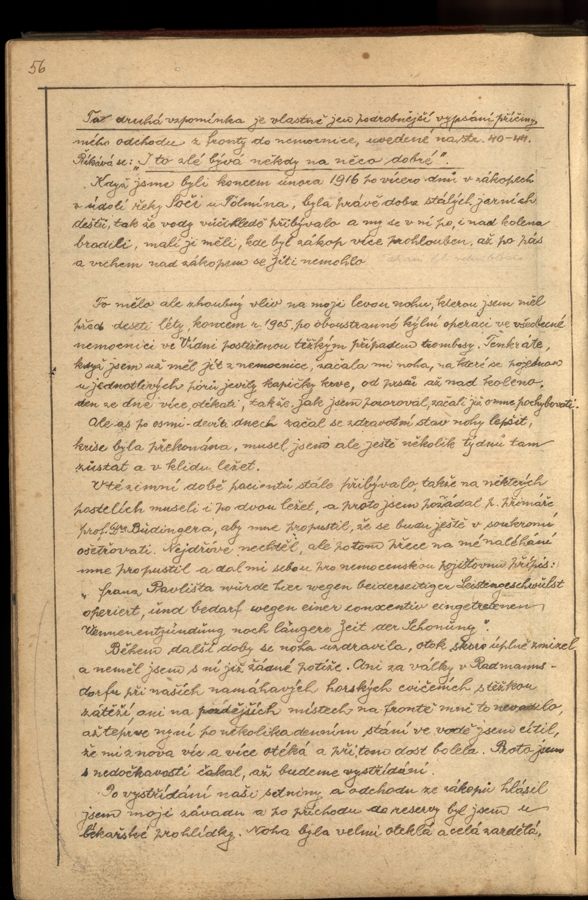 56
Tato druhá vzpomínka je vlastně jen podrobnější vypsání příčiny
mého odchodu z fronty do nemocnice, uvedené na str. 40-41.
Říkává se: „I to zlé bývá někdy na něco dobré".
Když jsme byli koncem února 1916 po vícero dnů v zákopech
v údolí řeky Soči u Tolmína, byla právě doba stálých jarních
dešťů, tak že vody přibývalo a my se v ní po, i nad kolena
brodili, malí ji měli, kde byl zákop více prohlouben, až po pás
a vrchem nad zákopem se jíti nemohlo
To mělo ale zhoubný vliv na moji levou nohu, kterou jsem měl
před deseti léty, koncem r. 1905, po oboustranné kýlní operaci ve všeobecné
nemocnici ve Vídni postiženou těžkým případem trombosy. Tenkráte,
když jsem už měl jít z nemocnice, začala mi noha, na které se pojednou
u jednotlivých pórů jevily kapičky krve, od prstů až nad koleno,
den ze dne více otékati, takže, jak jsem pozoroval, začali již o mne pochybovati.
Ale as po osmi-devíti dnech začal se zdravotní stav nohy lepšit,
krise byla překonána, musel jsem ale ještě několik týdnů tam
zůstat a v klidu ležet.
V té zimní době pacientů stále přibývalo, takže na některých
postelích museli i po dvou ležet, a proto jsem požádal p. primáře
prof. Dra Büdingera, aby mne propustil, že se budu ještě v soukromí
ošetřovati. Nejdříve nechtěl, ale potom přece na mé naléhání
mne propustil a dal mi sebou pro nemocenskou pojišťovnu přípis:
„Franz Pavlišta wurde hier wegen beiderseitiger Leistengeschwülst
operiert, und bedarf wegen einer eingetretenen
Vennenentzündung noch längere Zeit der Schonung".
Během další doby se noha uzdravila, otok skoro úplně zmizel
a neměl jsem s ní již žádné potíže. Ani za války v Radmanns-
dorfu při našich namáhavých horských cvičeních s těžkou
zátěží, ani na pozdějších místech na frontě mně to nevadilo,
až teprve nyní po několikadenním stání ve vodě jsem cítil,
že mi znova víc a více otéká a při tom dost bolela. Proto jsem
s nedočkavostí čekal, až budeme vystřídáni.
Po vystřídání naší setniny a odchodu ze zákopů hlásil
jsem moji závadu a po příchodu do reservy byl jsem u
lékařské prohlídky. Noha byla velmi oteklá a celá zardělá,